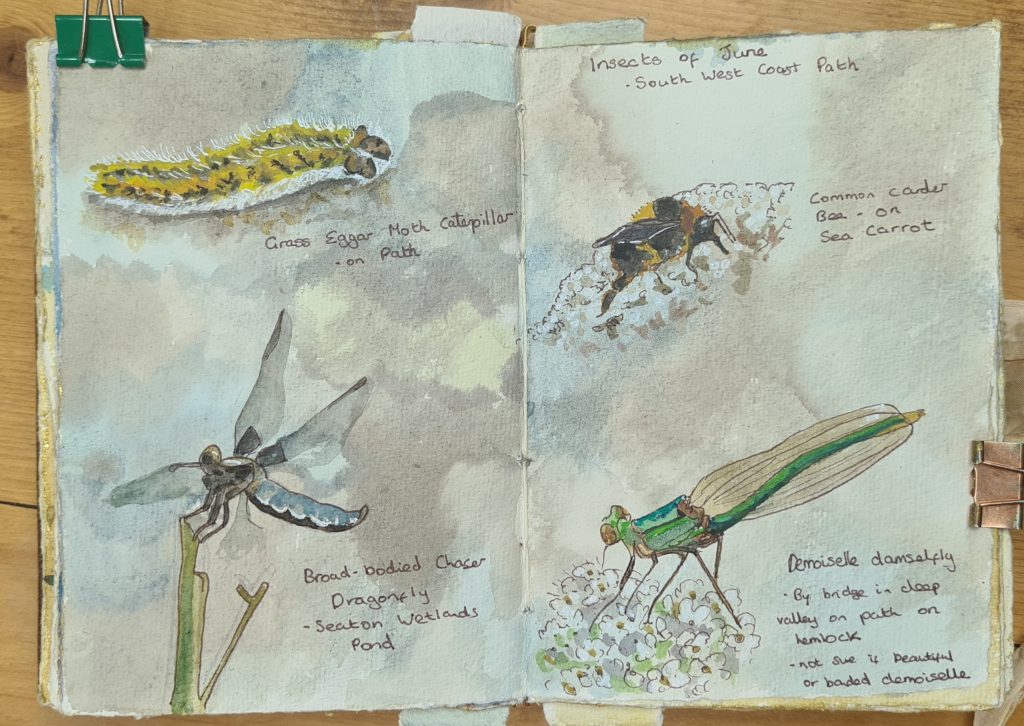 Grass Eggar Moth Caterpillar
- on Path
Broad-bodied Chaser
Dragonfly
- Seaton Wetlands
Pond
Insects of June
- South West Coast Path
Common carder
Bee - on
Sea Carrot
Demoiselle damselfly
- By bridge in deep
valley on path on
hemlock
- not sure if beautiful
or banded demoiselle